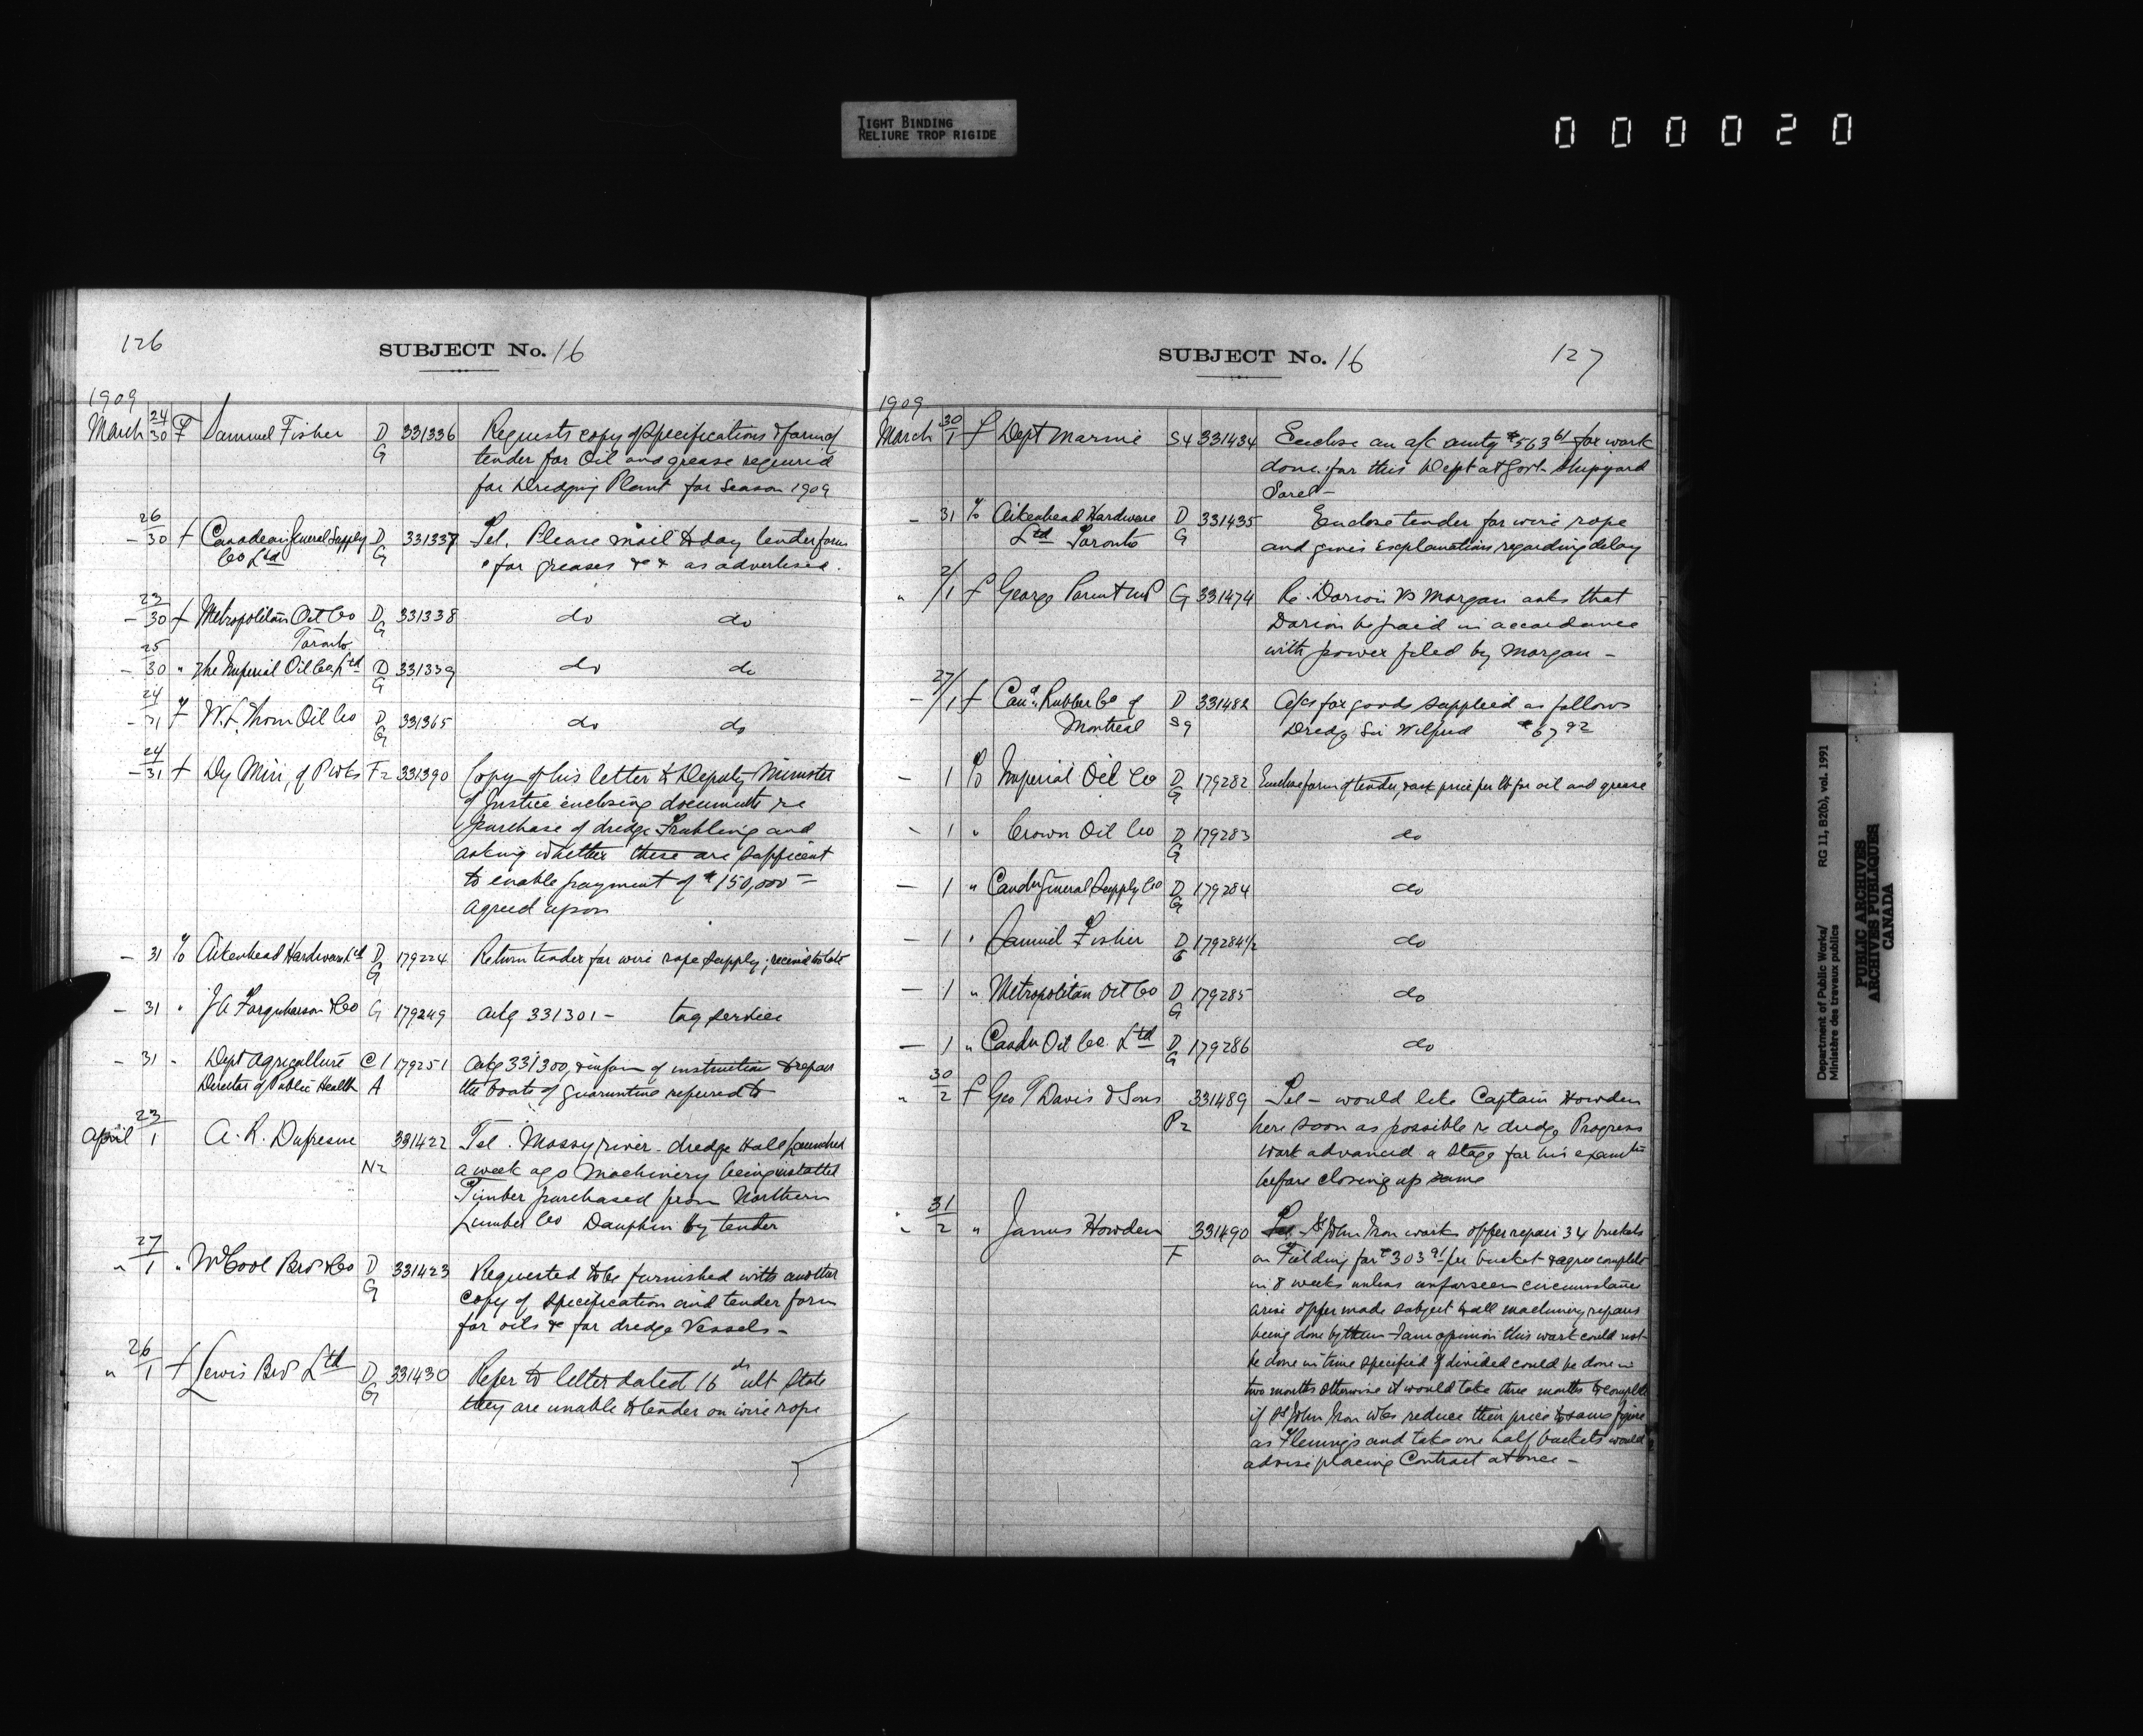 TIGHT BINDING
RELIURE TROP RIGIDE
000020
126
SUBJECT No. 16
1909
March 24/30 F Samuel Fisher D G 331336 Requests copy of Specifications & form of
tender for Oil and grease required
for Dredging Plant for Season 1909
- 26/30 f Canadian General Supply D G 331337 Tel. Please mail to day tender form
Co Ltd for greases &c & as advertised.
- 23/30 f Metropolitan Oil Co D G 331338 do do
Toronto
- 25/30 " The Imperial Oil Co. Ltd D G 331339 do do
- 24/31 f W. F. Thom Oil Co D G 331365 do do
- 24/31 f Dy Min, of P Wks F2 331390 Copy of his letter to Deputy Minister
of Justice enclosing documents re
purchase of dredge Fruhling and
asking whether these are sufficent
to enable payment of $150,000 -
agreed upon
- 31 To Aikenhead Hardware Ltd D G 179224 Return tender for wire rope supply; received to late
- 31 " J A Farquharson & Co G 179249 ackg 331301 - tag service
- 31 - Dept Agriculture C 1 179251 ackg 331300, & inform of instruction to repair
Director of Public Health A the boats of quarantine referred to
April 23/1 A. R. Dufresne 331422 Tel. Mossy river - dredge Hall launched
N2 a week ago Machinery being installed
Timber purchased from Northern
Lumber Co Dauphin by tender
" 27/1 " McCool Bros & Co D G 331423 Requested to be furnished with another
copy of specification and tender form
for oils &c for dredge Vessels -
" 26/1 f Lewis Bros Ltd D G 331430 Refer to letter dated 16th ult State
they are unable to tender on wire rope
SUBJECT No. 16
127
1909
March 30/1 f Dept Marine S4 331434 Enclose an a/c amtg $563 61 for work
done for this Dept at Govt Shipyard
Sorel -
- 31 To Aikenhead Hardware D G 331435 Enclose tender for wire rope
Ltd Toronto and gives explanations regarding delay
" 2/1 f George Parent MP G 331474 Re. Dorion Vs Morgan asks that
Dorion be paid in accordance
with power filed by Morgan -
- 27/1 f Cana. Rubber Co of D 331482 A/cs for goods supplied as follows
Montreal S9 Dredge Sir Wilfred $67 92
- 1 To Imperial Oil Co D G 179282 Enclose form of tender, & ask price per lb for oil and grease
- 1 " Crown Oil Co D G 179283 do
- 1 " Candn General Supply Co D G 179284 do
- 1 " Samuel Fisher D G 179284 1/2 do
- 1 " Metropolitan Oil Co D G 179285 do
- 1 " Candn Oil Co. Ltd D G 179286 do
" 30/2 f Geo T Davis & Sons 331489 Tel - would like Captain Howden
P2 here soon as possible re dredge Progress
work advanced a stage for his examtn
before closing up same
" 31/2 " James Howden 331490 Tel - St John Iron works offer repair 34 buckets
F on Fielding for $303 91 per bucket & agree complete
in 8 weeks unless unforseen circumstances
arise offer made subject to all machinery repairs
being done by them - I am opinion this work could not
be done in time specified if divided could be done in
two months otherwise it would take three months to complete
if St John Iron Wks reduce their price to same figure
as Flemings and take one half buckets would
advise placing Contract at once -
Department of Public Works/
Ministère des travaux publics
RG 11, B2(b), vol. 1991
PUBLIC ARCHIVES
ARCHIVES PUBLIQUES
CANADA